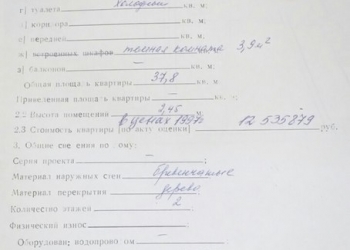 г) туалета холодный кв. м;
д) коридора кв. м;
е) передней — кв. м;
ж) встроенных шкафов темная комната 3,9 м²
з) балконов — кв. м;
Общая площадь квартиры 37,8 кв. м;
Приведенная площадь квартиры — кв. м;
2.2 Высота помещений 2,45 м;
2.3 Стоимость квартиры (по акту оценки) в ценах 1997г 12 535 879 руб.
3. Общие сведения по дому:
Серия проекта — ;
Материал наружных стен бревенчатые
Материал перекрытий дерево
Количество этажей 2 ;
Физический износ ;
Оборудован: водопроводом — ;